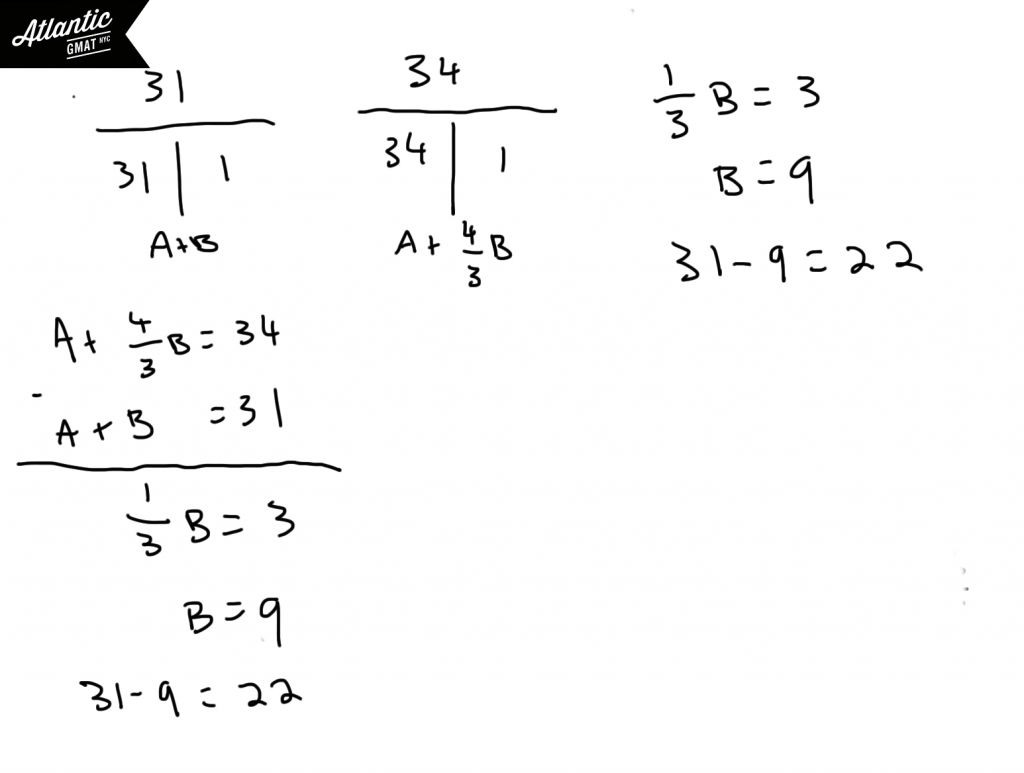 Atlantic
GMAT NYC
31
31 | 1
A+B
34
34 | 1
A + 4/3 B
1/3 B = 3
B = 9
31 - 9 = 22
A + 4/3 B = 34
- A + B = 31
1/3 B = 3
B = 9
31 - 9 = 22